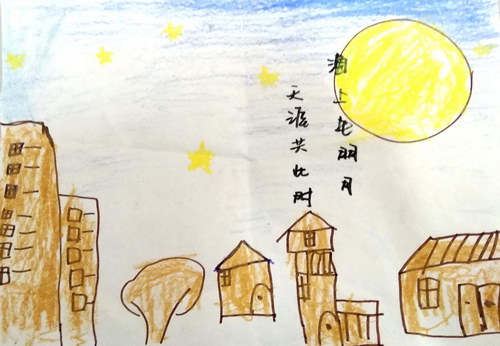 海上明月
天涯共此时